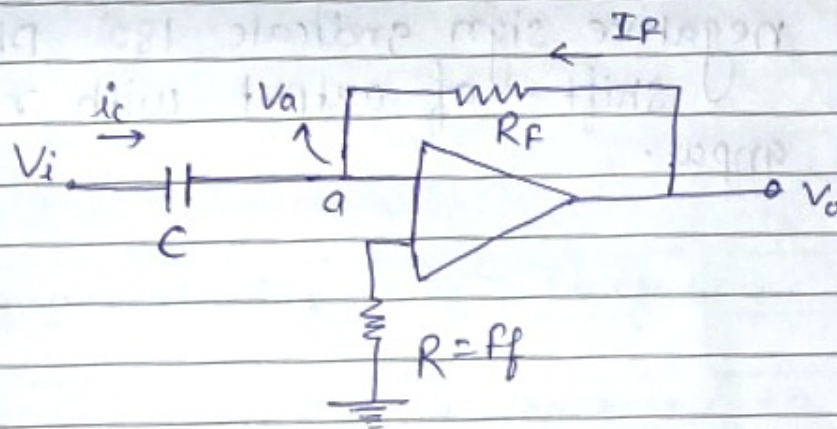 IF
ic
Va
RF
Vi
a
Vo
C
R = ff